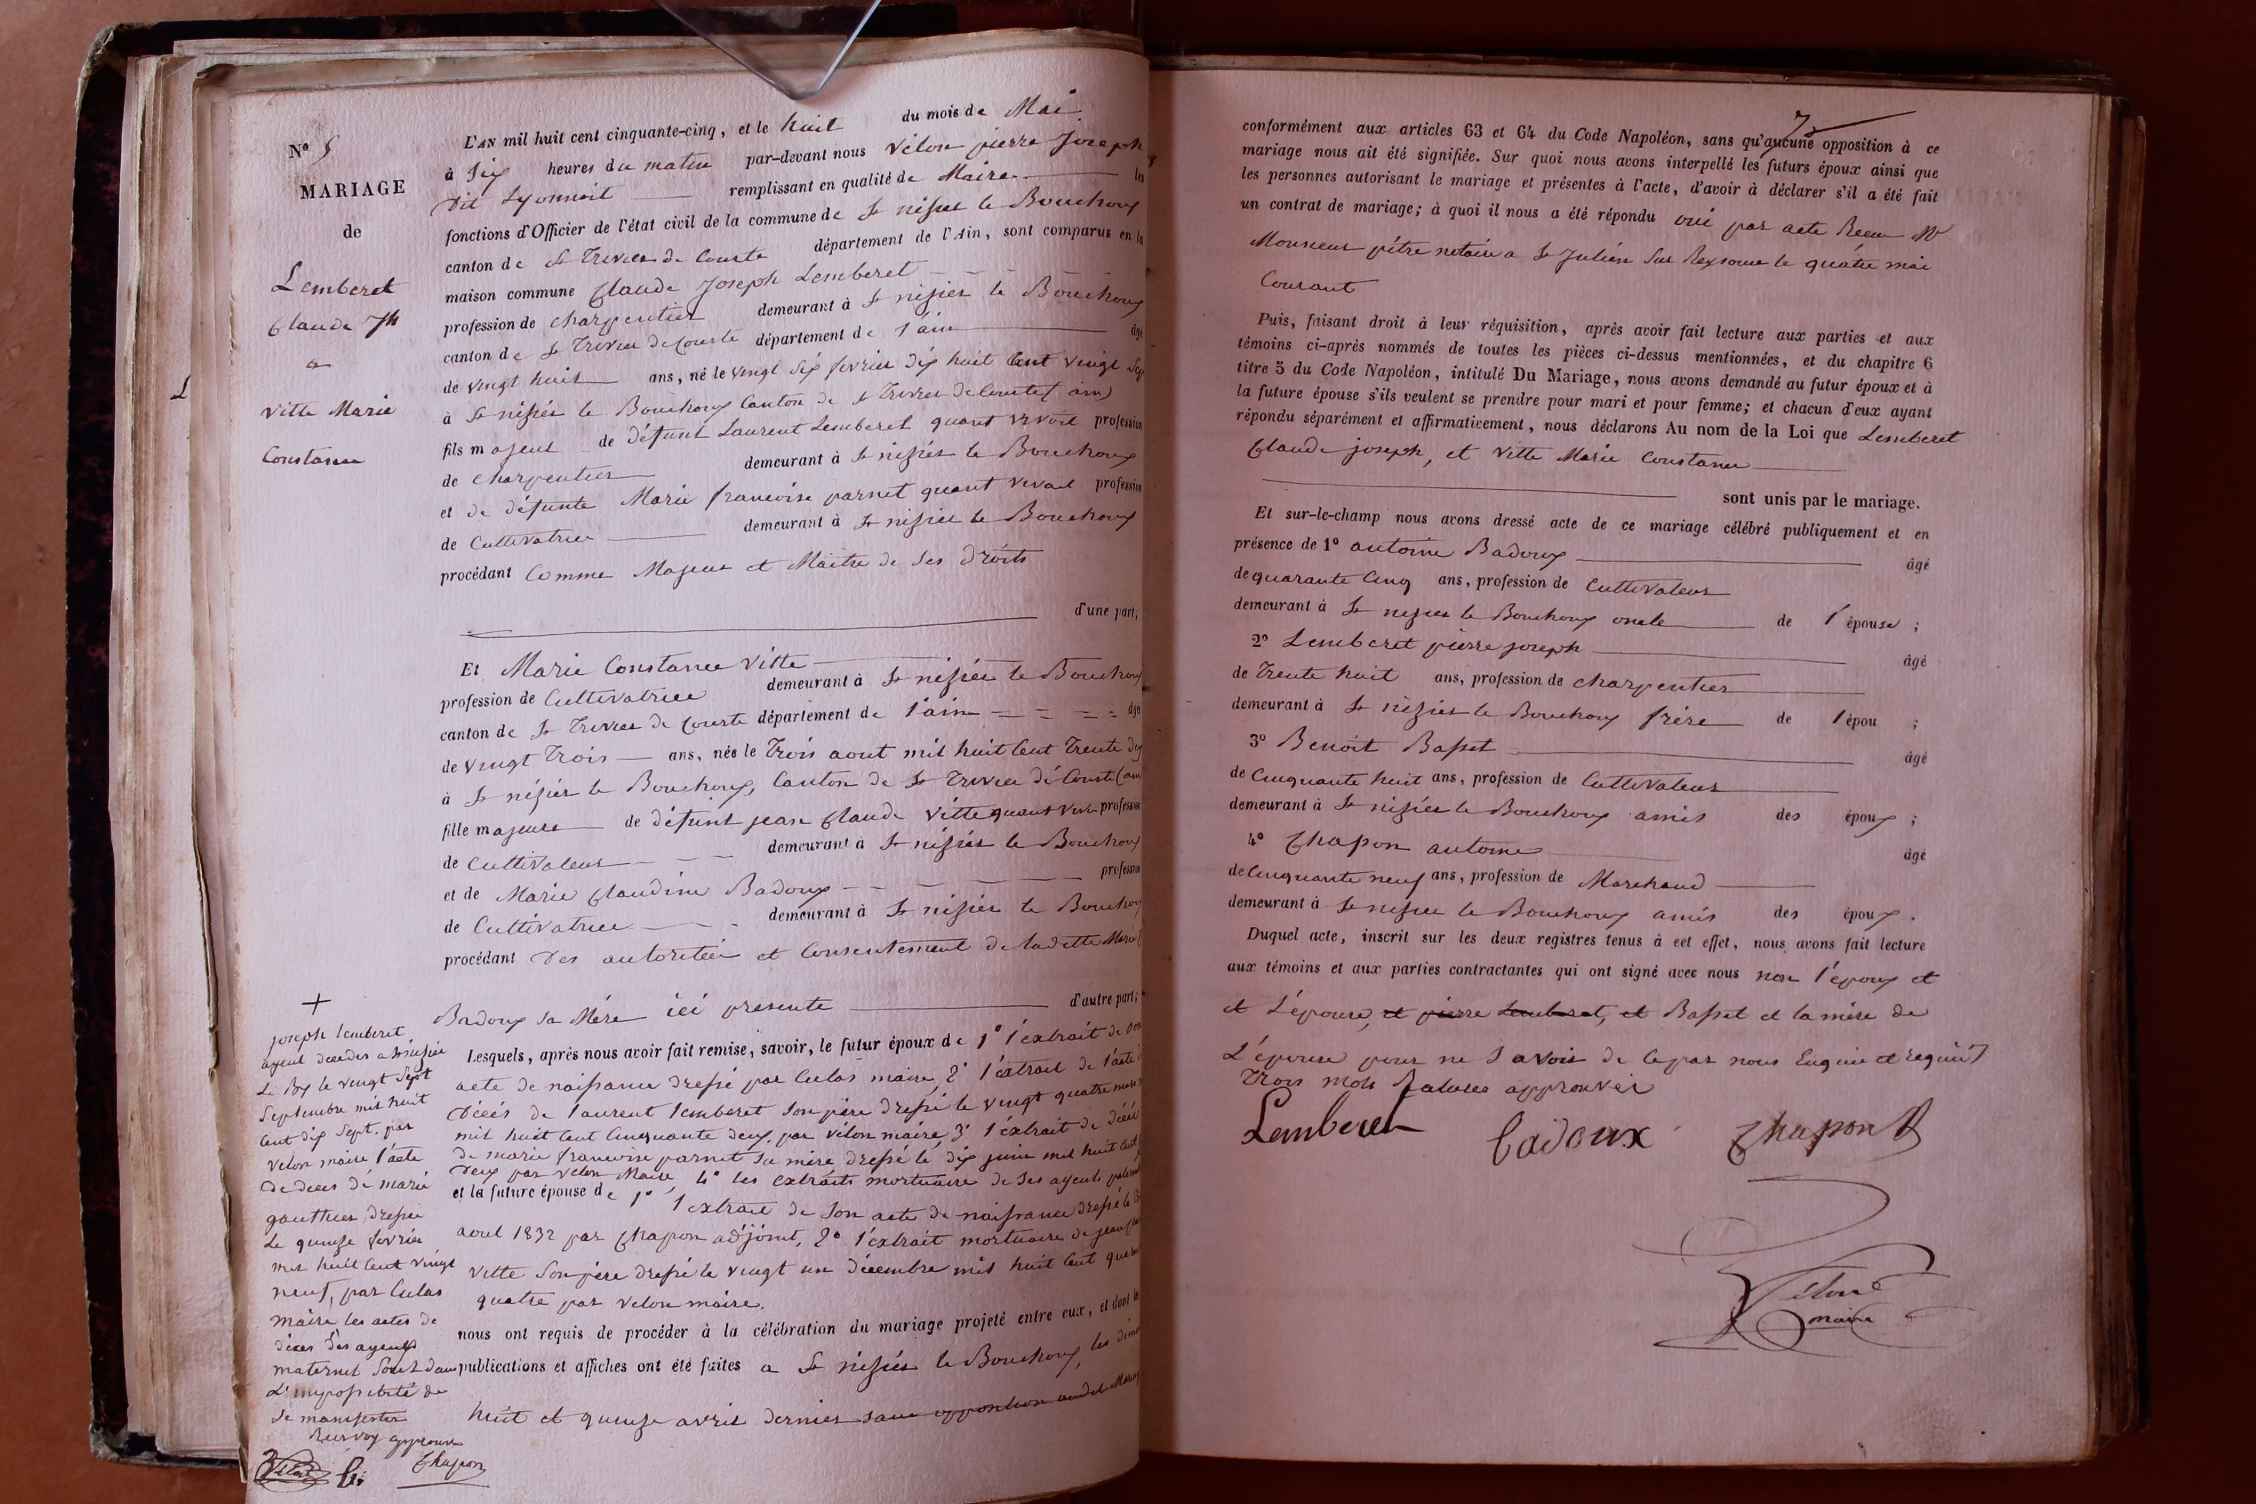 N° 5
MARIAGE
de
Lemberet
Claude Jh
a
Vitte Marie
Constance
L'AN mil huit cent cinquante-cinq, et le huit du mois de Mai
à Six heures du matin par-devant nous Vélon pierre Joseph
Dit Lyonnait remplissant en qualité de Maire les
fonctions d'Officier de l'état civil de la commune de St nisier le Bouchoux
canton de St Trivier de Courte département de l'Ain, sont comparus en la
maison commune Claude Joseph Lemberet
profession de charpentier demeurant à St nizier le Bouchoux
canton de St Trivier de Courte département de l'ain âgé
de vingt huit ans, né le vingt six fevrier dix huit Cent vingt Sep
à St nisier le Bouchoux Canton de St Trivier de Courte (ain)
fils majeur de défunt Laurent Lemberet quant vivoit profession
de charpentier demeurant à St nisier le Bouchoux
et de défunte Marie francoise parnet quant vivait profession
de Cultivatrice demeurant à St nisier le Bouchoux
procédant Comme Majeur et Maitre de Ses Droits
d'une part;
Et Marie Constance Vitte
profession de Cultivatrice demeurant à St nisier le Bouchoux
canton de St Trivier de Courte département de l'ain âgé
de vingt Trois ans, née le Trois aout mil huit Cent Trente deux
à St nisier le Bouchoux, Canton de St Trivier de Courte (ain
fille majeure de défunt jean Claude Vitte quant vivoit profession
de Cultivateur demeurant à St nisier le Bouchoux
et de Marie Claudine Badoux profession
de Cultivatrice demeurant à St nisier le Bouchoux
procédant Des autoritée et Consentement de laditte Marie C
Badoux sa Mère ici presente d'autre part;
Lesquels, après nous avoir fait remise, savoir, le futur époux de 1° l'extrait de son
acte de naissance dressé par Culas maire, 2° l'extrait de l'acte de
Décès de laurent lemberet son père dressé le vingt quatre mars
mil huit Cent Cinquante deux par vélon maire, 3° l'extrait de décès
de marie francoise parnet sa mère dressé le dix juin mil huit Cent
Deux par velon Maire, 4° les extraits mortuaire de ses ayeuls paternel
et la future épouse de 1° l'extrait de Son acte de naissance dressé le
aout 1832 par Chapon adjoint, 2° l'extrait mortuaire de jean Claude
Vitte Son père dressé le vingt un décembre mil huit Cent quarante
quatre par velon maire.
nous ont requis de procéder à la célébration du mariage projeté entre eux, et dont les
publications et affiches ont été faites a St nisier le Bouchoux, les dim
huit et quinze avril dernier sans opposition audit Mariage
+
joseph lemberet
ayeul decedes a St nisier
Le Bx le vingt Sept
Septembre mil huit
Cent dix Sept. par
Velon maire l'acte
de deces de marie
gauthier dressée
Le quinze fevrier
mil huit Cent vingt
neuf, par Culas
maire les actes de
déces des ayeuls
maternel sont dans
L'impossibilité de
Se manifester
Renvoy approuvé
Vélon Chapon
conformément aux articles 63 et 64 du Code Napoléon, sans qu'aucune opposition à ce
mariage nous ait été signifiée. Sur quoi nous avons interpellé les futurs époux ainsi que
les personnes autorisant le mariage et présentes à l'acte, d'avoir à déclarer s'il a été fait
un contrat de mariage; à quoi il nous a été répondu oui par acte Recu Mr
Monsieur pitre notaire a St Julien Sur Reyssouse le quatre mai
Courant
Puis, faisant droit à leur réquisition, après avoir fait lecture aux parties et aux
témoins ci-après nommés de toutes les pièces ci-dessus mentionnées, et du chapitre 6
titre 5 du Code Napoléon, intitulé Du Mariage, nous avons demandé au futur époux et à
la future épouse s'ils veulent se prendre pour mari et pour femme; et chacun d'eux ayant
répondu séparément et affirmativement, nous déclarons Au nom de la Loi que Lemberet
Claude joseph, et Vitte Marie Constance
sont unis par le mariage.
Et sur-le-champ nous avons dressé acte de ce mariage célébré publiquement et en
présence de 1° antoine Badoux âgé
de quarante Cinq ans, profession de Cultivateur
demeurant à St nisier le Bouchoux oncle de l'épouse;
2° Lemberet pierre joseph âgé
de Trente huit ans, profession de charpentier
demeurant à St nizier le Bouchoux frère de l'épou;
3° Benoit Basset âgé
de Cinquante huit ans, profession de Cultivateur
demeurant à St nisier le Bouchoux amis des époux;
4° Chapon antoine âgé
de Cinquante neuf ans, profession de Marchand
demeurant à St nisier le Bouchoux amis des époux.
Duquel acte, inscrit sur les deux registres tenus à cet effet, nous avons fait lecture
aux témoins et aux parties contractantes qui ont signé avec nous non l'époux et
et L'épouse, et pierre Lemberet, et Basset et la mère de
L'épouse pour ne Savoir de Ce par nous Enquie et requis
Trois mots Raturés approuvée
Lemberet Badoux Chapon A
Vélon
maire